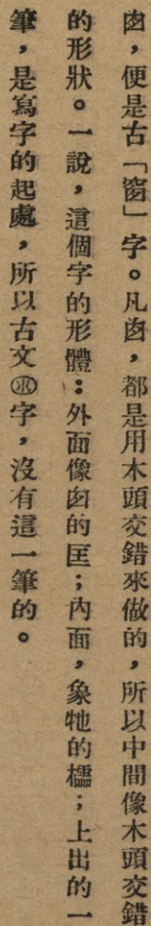 囱，便是古「窗」字。凡囱，都是用木頭交錯來做的，所以中間像木頭交錯
的形狀。一說，這個字的形體：外面像囱的匡；內面，象牠的櫺；上出的一
筆，是寫字的起處，所以古文字，沒有這一筆的。